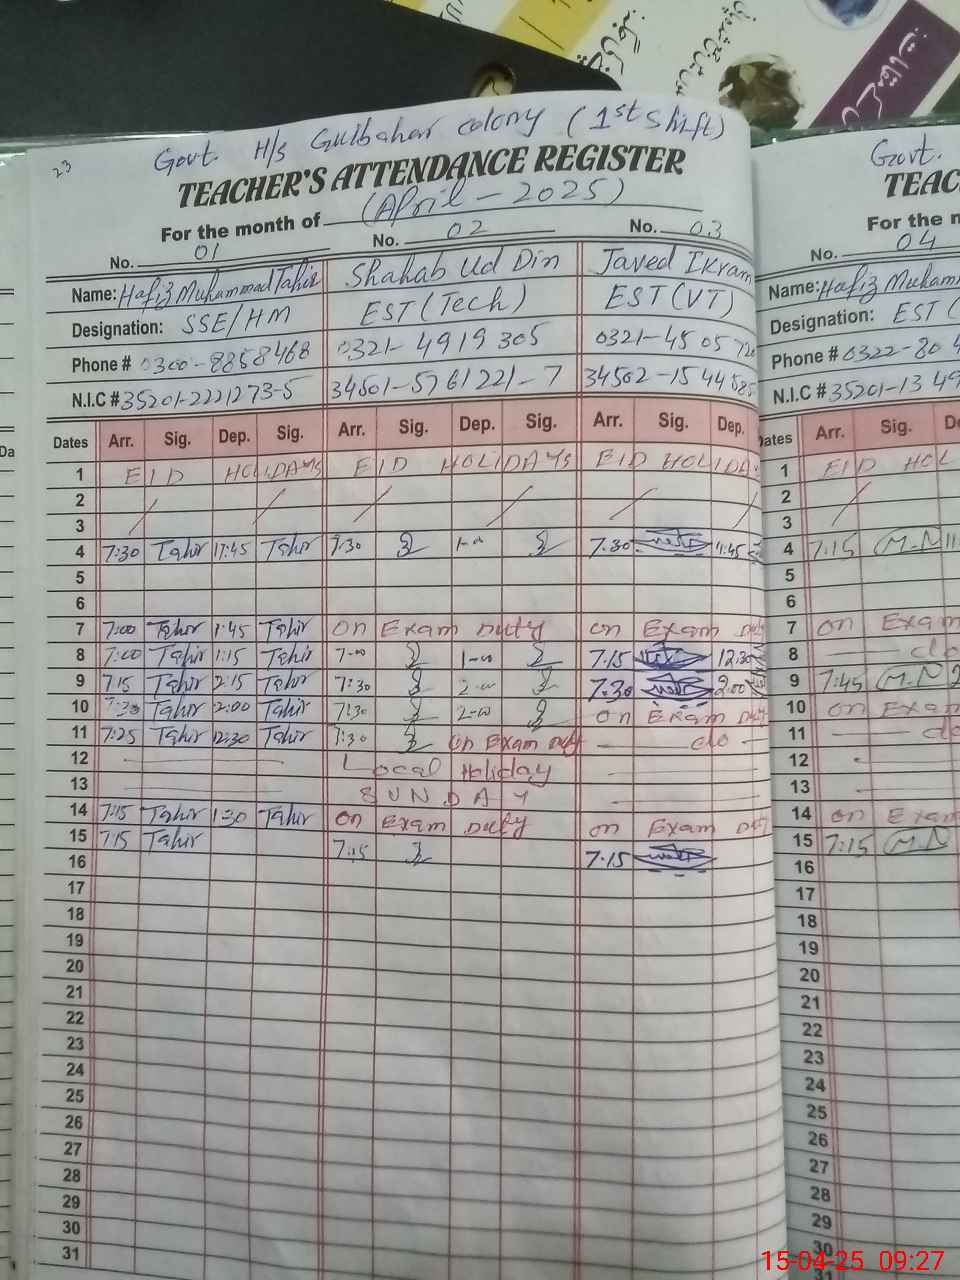 23
Govt. H/s Gulbahar colony (1st shift)
TEACHER'S ATTENDANCE REGISTER
For the month of (April - 2025)
No. 01 No. 02 No. 03
Name: Hafiz Muhammad Tahir Shahab Ud Din Javed Ikram
Designation: SSE/HM EST (Tech) EST (VT)
Phone # 0300-8858468 0321-4919305 0321-4505720
N.I.C # 35201-2221273-5 34501-5761221-7 34502-1544585
Dates Arr. Sig. Dep. Sig. Arr. Sig. Dep. Sig. Arr. Sig. Dep.
1 EID HOLIDAYS EID HOLIDAYS EID HOLIDA
2
3
4 7:30 Tahir 11:45 Tahir 7:30 1-00 7.30 11:45
5
6
7 7:00 Tahir 1:45 Tahir On Exam Duty On Exam Duty
8 7:00 Tahir 1:15 Tahir 7-00 1-00 7.15 12.30
9 7:15 Tahir 2:15 Tahir 7:30 2-00 7.30 2.00
10 7:30 Tahir 2:00 Tahir 7:30 2-00 On Exam Duty
11 7:25 Tahir 12:30 Tahir 7:30 On Exam Duty do
12 Local Holiday
13 SUNDAY
14 7:15 Tahir 1:30 Tahir On Exam Duty On Exam Duty
15 7:15 Tahir 7:15 7.15
16
17
18
19
20
21
22
23
24
25
26
27
28
29
30
31
Govt.
TEAC
For the m
No. 04
Name: Hafiz Muhamm
Designation: EST (
Phone # 0322-804
N.I.C # 35201-1349
Dates Arr. Sig. De
1 EID HOL
2
3
4 7:15 M.N 11:
5
6
7 On Exam
8 do
9 7:45 M.N 2
10 On Exam
11 do
12
13
14 On Exam
15 7:15 M.N
16
17
18
19
20
21
22
23
24
25
26
27
28
29
30
31
15-04-25 09:27